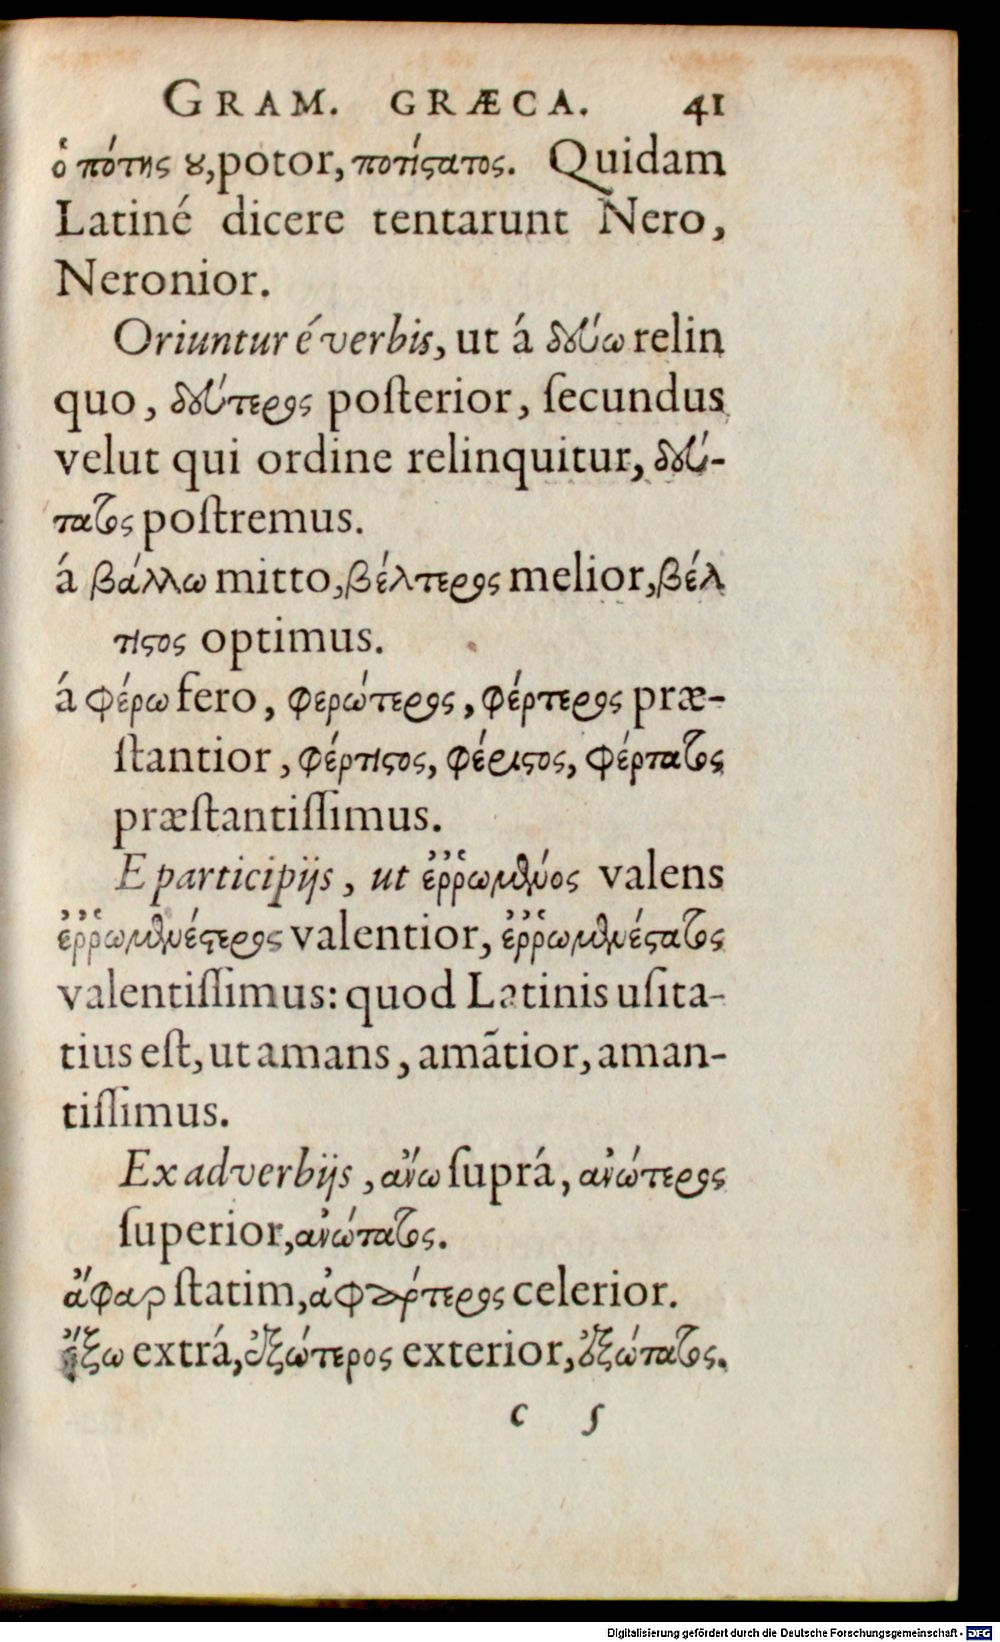 GRAM. GRÆCA. 41
ὁ πότης ȣ, potor, ποτίϛατος. Quidam
Latiné dicere tentarunt Nero,
Neronior.
Oriuntur é verbis, ut á δεύω relin
quo, δεύτερος poſterior, ſecundus
velut qui ordine relinquitur, δεύ-
τατος poſtremus.
á βάλλω mitto, βέλτερος melior, βέλ
τιϛος optimus.
á φέρω fero, φερώτερος, φέρτερος præ-
ſtantior, φέρτιϛος, φέριϛος, φέρτατος
præſtantiſſimus.
E participijs, ut ἐῤῥωμένος valens
ἐῤῥωμενέϛερος valentior, ἐῤῥωμενέϛατος
valentiſſimus: quod Latinis uſita-
tius eſt, ut amans, amãtior, aman-
tiſſimus.
Ex adverbijs, ἄνω ſuprá, ἀνώτερος
ſuperior, ἀνώτατος.
ἄφαρ ſtatim, ἀφάρτερος celerior.
ἔξω extrá, ἐξώτερος exterior, ἐξώτατος.
c 5
Digitalisierung gefördert durch die Deutsche Forschungsgemeinschaft - DFG